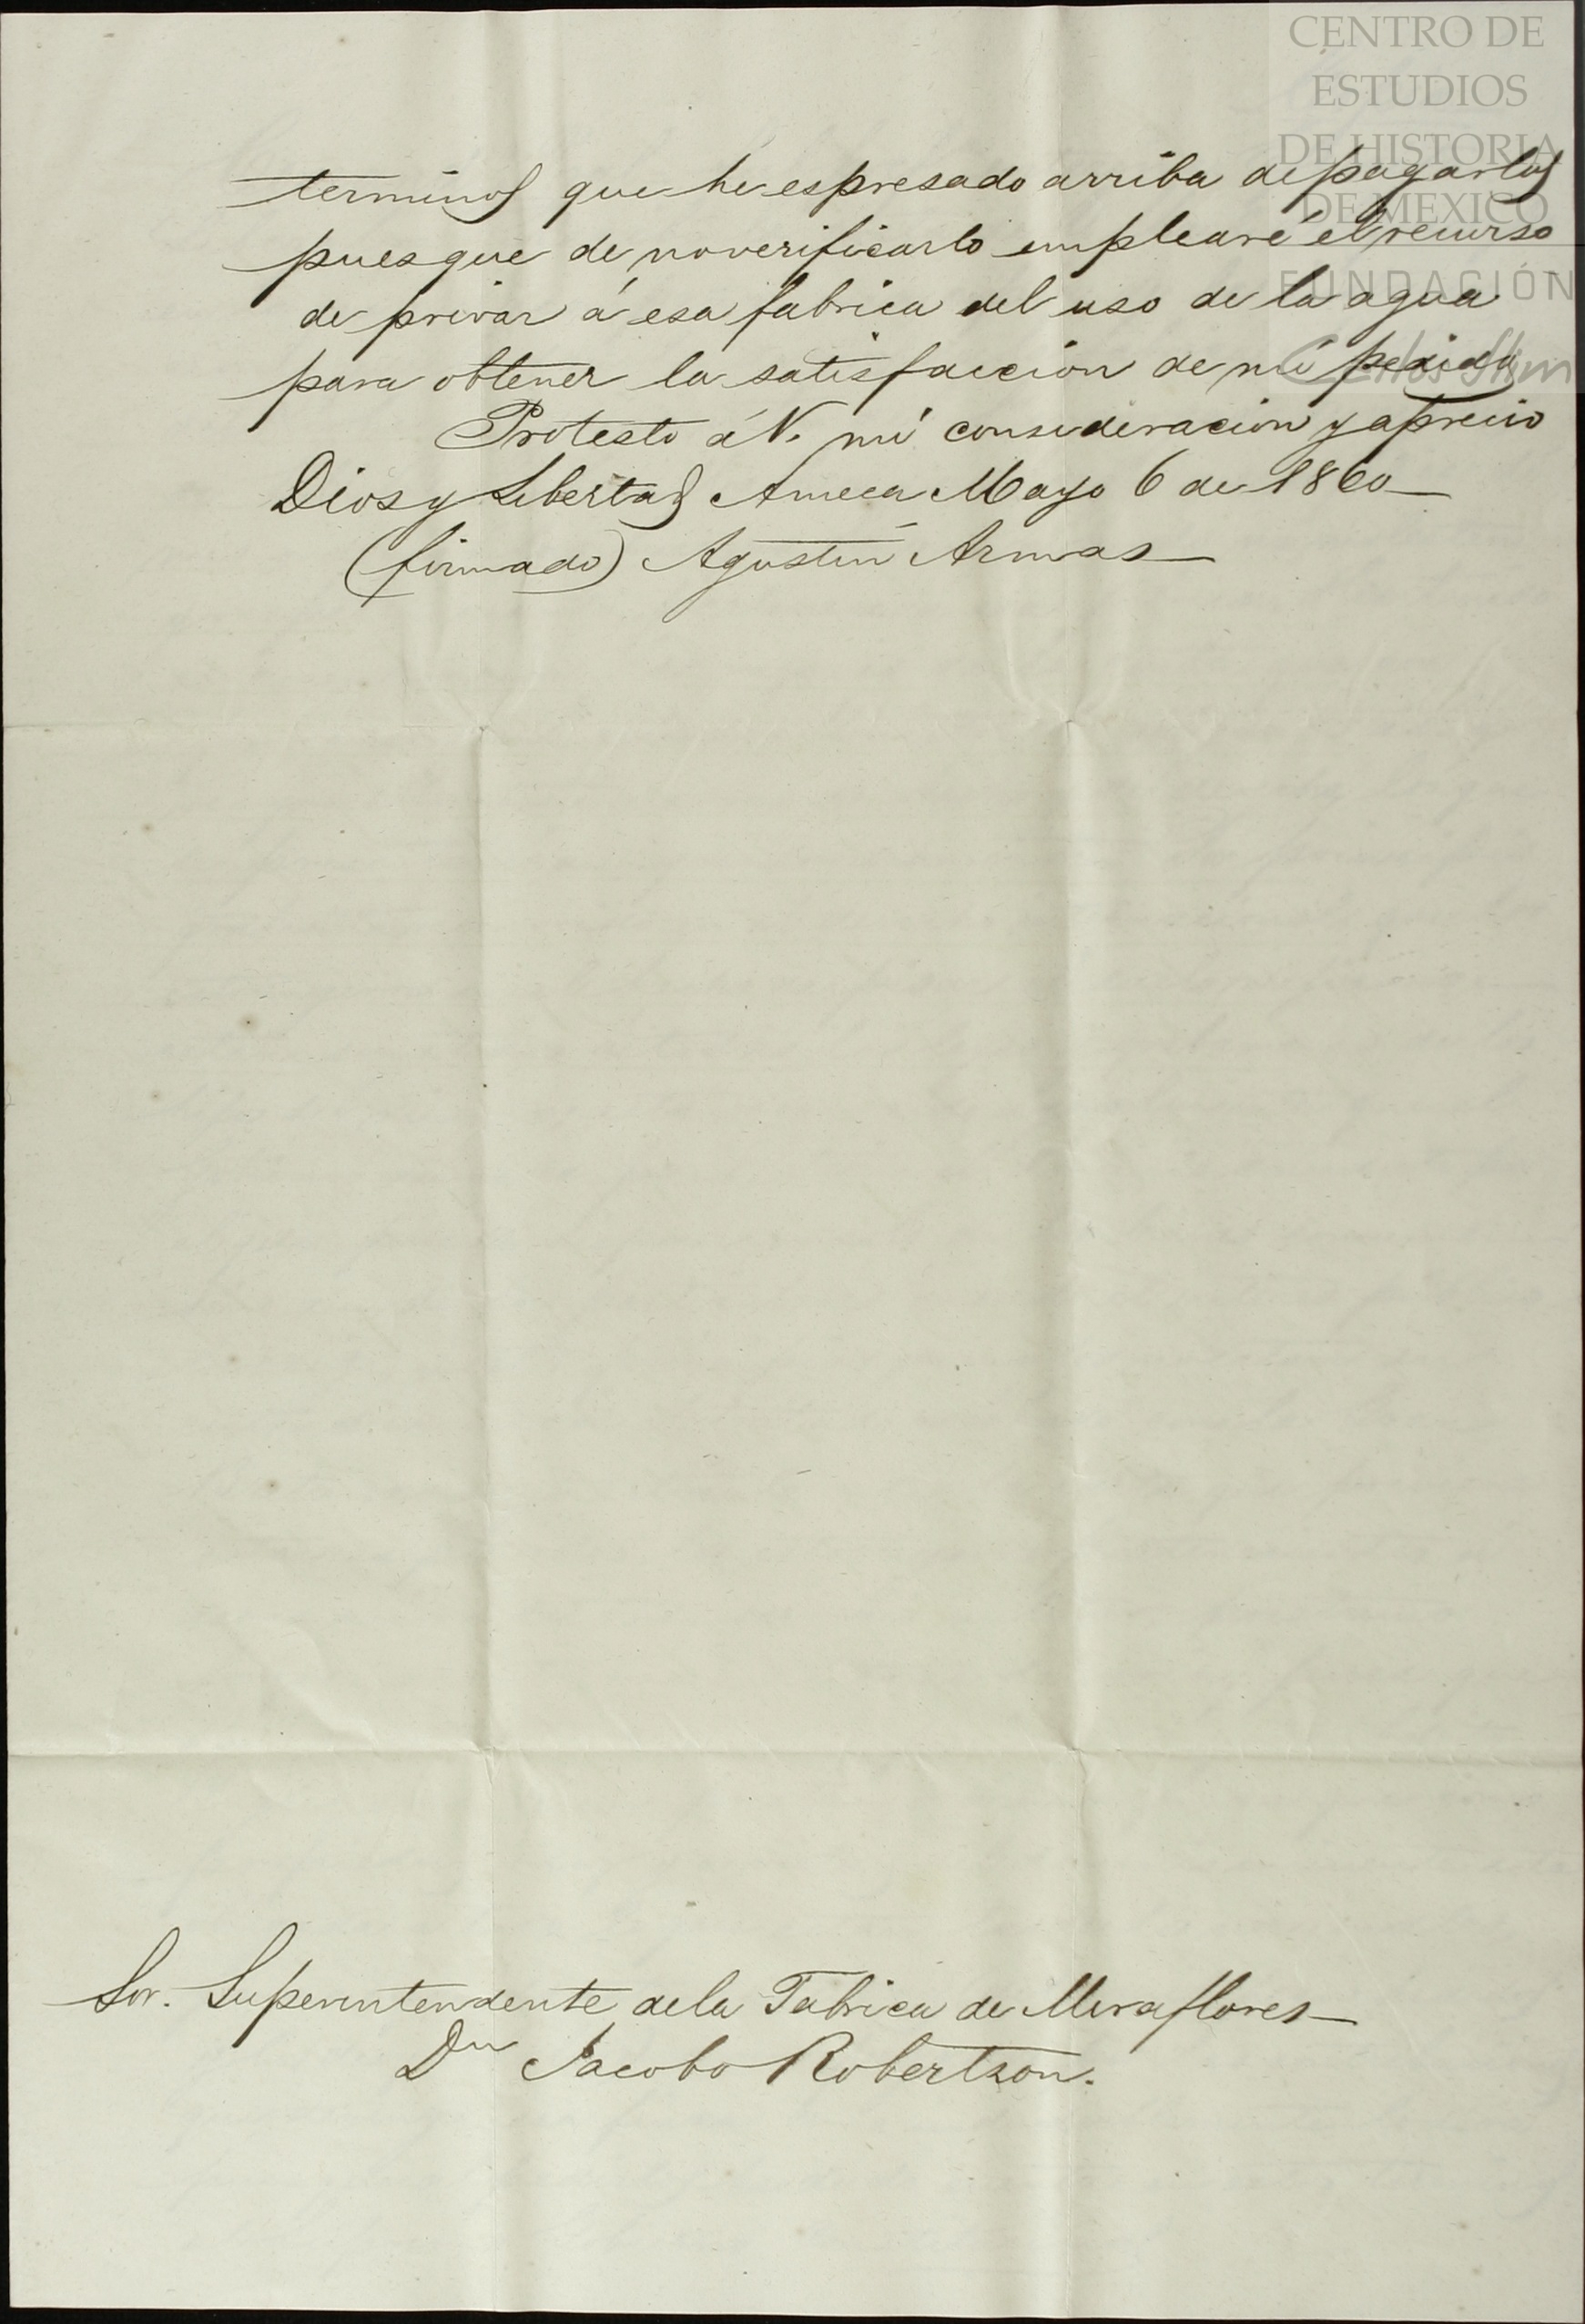 CENTRO DE
ESTUDIOS
DE HISTORIA
DE MEXICO
FUNDACIÓN
Carlos Slim
terminos que he espresado arriba de pagarlos
pues que de no verificarlo emplearé el recurso
de privar á esa fabrica del uso de la agua
para obtener la satisfaccion de mi pedido
Protesto á V. mi consideracion y aprecio
Dios y Libertad Ameca Mayo 6 de 1860
(firmado) Agustin Armas
Sor. Superintendente de la Fabrica de Miraflores
Dn Jacobo Robertson.